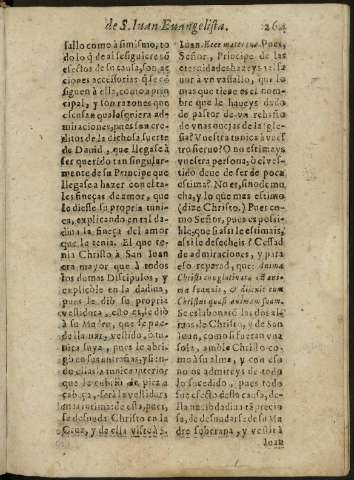 de S. Iuan Euangelista. 264
sallo como à si mismo, to
do lo q̃ de aì se siguiere sõ
efectos de su causa, son ac
ciones accessorias q̃ se si
guen à ella, como a prin
cipal, y son razones que
escusan qualesquiera ad-
miraciones, pues son cre-
ditos de la dichosa suerte
de Dauid, que llegasse à
ser querido tan singular-
mente de su Principe que
llegasse a hazer con el ta-
les fineças de amor, que
le diesse su propria tuni-
ca, explicando en tal da-
diua la fineça del amor
que la tenia. El que te-
nia Christo à San Iuan
era mayor que à todos
los demas Discipulos, y
explicòle en la dadiua,
pues le diò su propria
vestidura, esto es, le diò
à su Madre, que se pue-
de llamar, vestido, ò tu-
nica suya, pues le abri-
gò en sus entrañas, y sien-
do ellas la tunica interior
que le cubriò de pies a
cabeça, serà la vestidura
mas intima: de esta, pues,
se desnuda Christo en la
Cruz, y de ella viste à S.
Iuan. Ecce mater tua. Pues,
Señor, Principe de las
eternidades hazeys tal fa-
uor à vn vassallo, que lo
mas que tiene es el nom
bre que le haueys dado
de pastor de vn rebaño
de vnas ouejas de la Igle-
sia? Vuestra tunica à vues
tro sieruo? O no estimays
vuestra persona, ò el ves-
tido deue de ser de poca
estima? No es, sino de mu
cha, y lo que mas estimo
(dize Christo.) Pues co-
mo Señor, pues es possi-
ble, que si assi le estimais,
assi le desecheis? Cessad
de admiraciones, y para
eso reparad, que: Anima
Christi conglutinata est ani-
mæ Ioannis, & dilexit eum
Christus quasi animam suam.
Se eslabonarõ las dos al
mas de Christo, y de San
Iuan, como si fueran vna
sola, amòle Christo co-
mo à su alma, y con eso
no os admireys de todo
lo sucedido, pues todo
fue efecto desta causa, de
lla nació dadiua tã precio
sa, de desnudarse de su Ma
dre soberana, y vestir à
Ioan